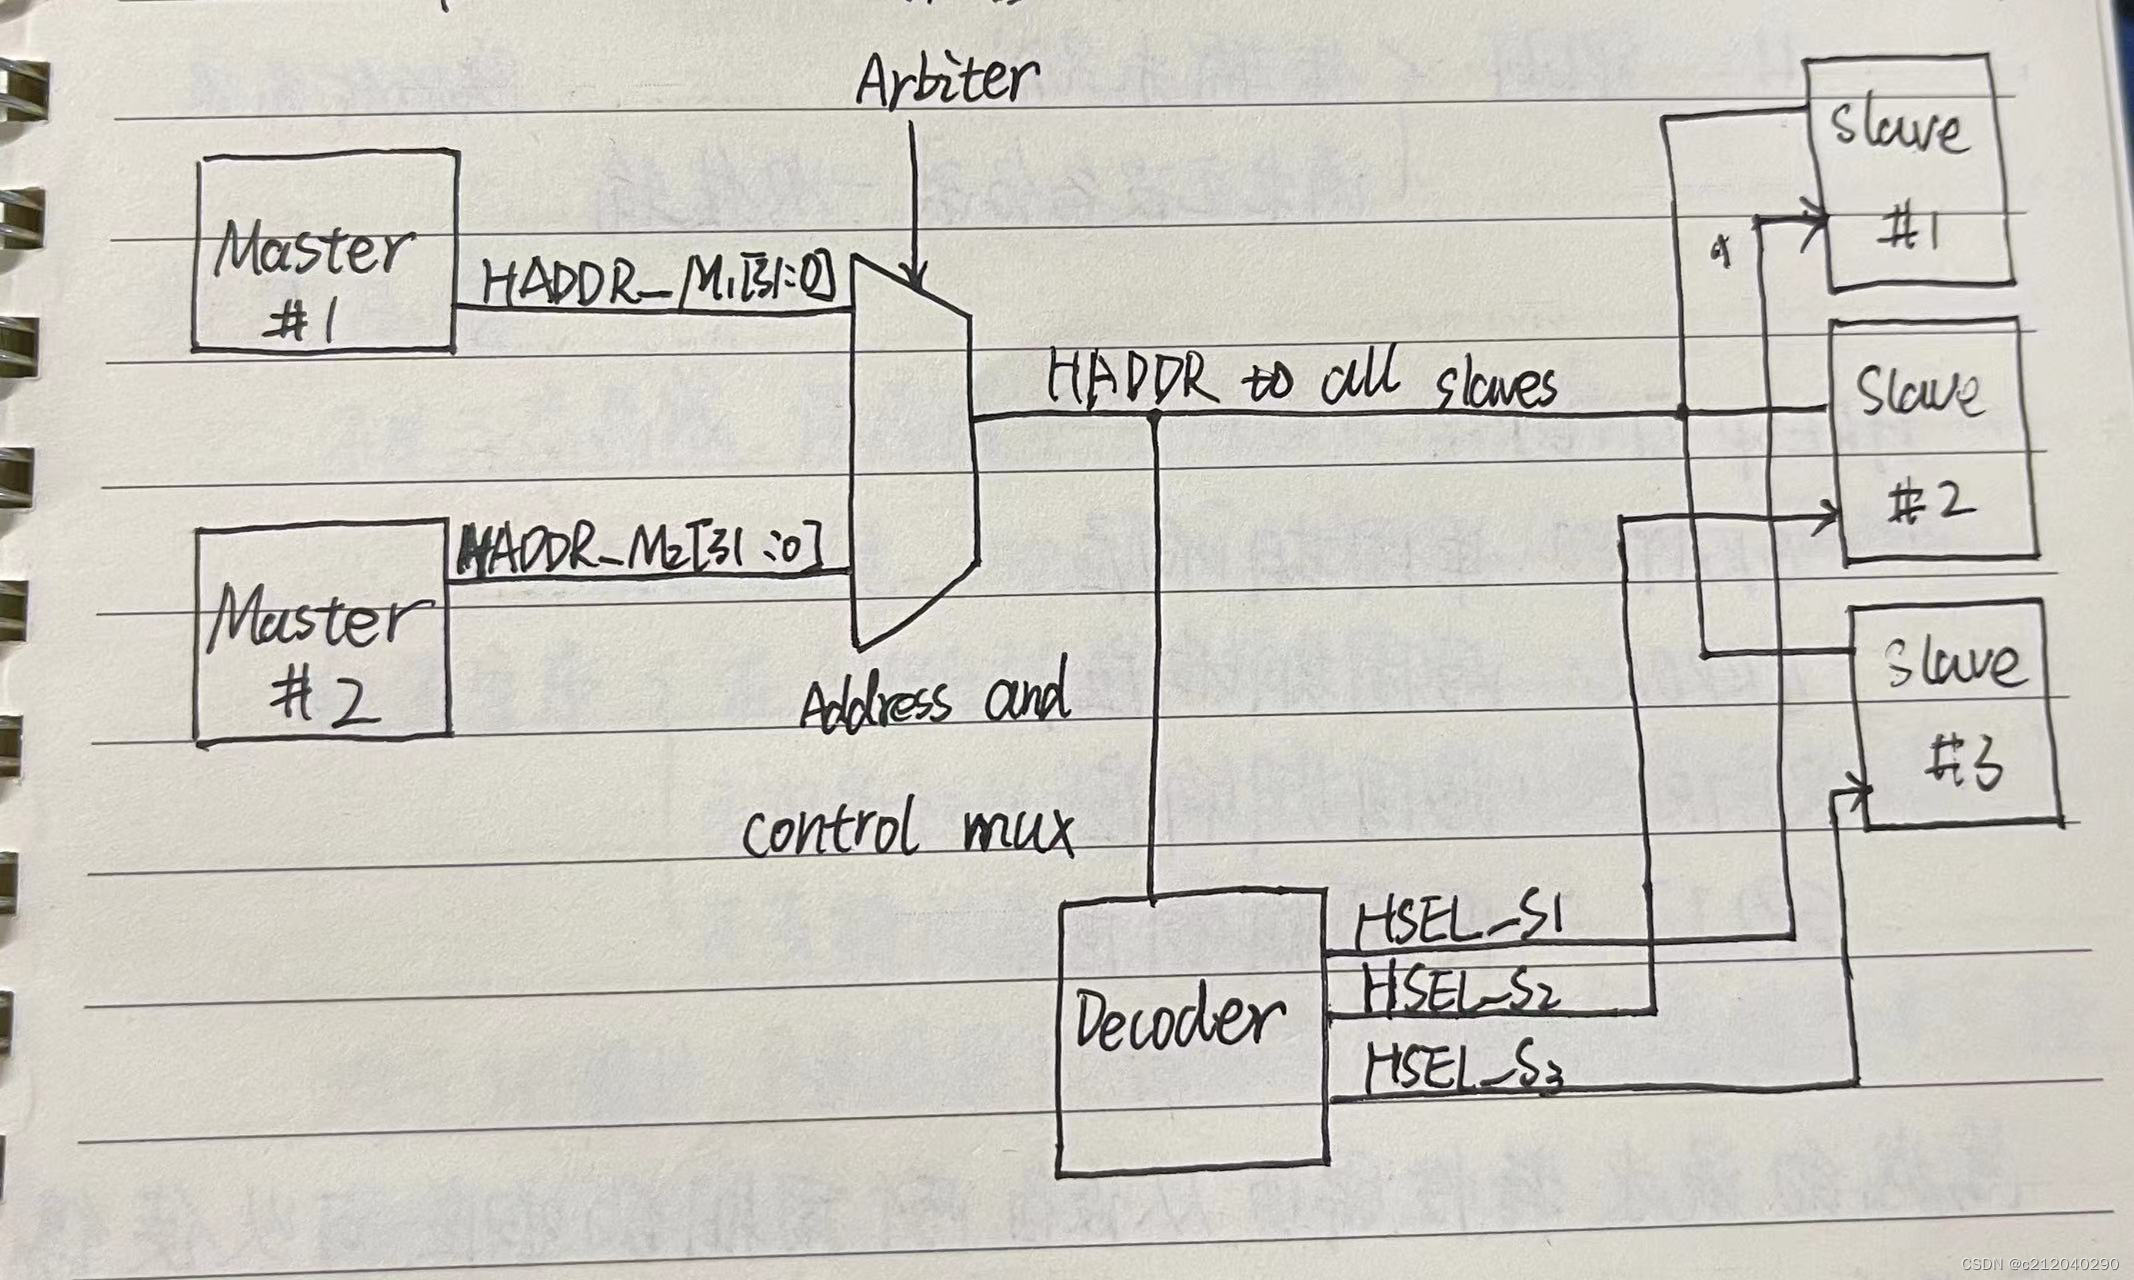 Arbiter
Master
#1
HADDR_M1[31:0]
Slave
#1
HADDR to all slaves
Slave
#2
Master
#2
HADDR_M2[31:0]
Address and
control mux
Slave
#3
Decoder
HSEL_S1
HSEL_S2
HSEL_S3
CSDN @c212040290